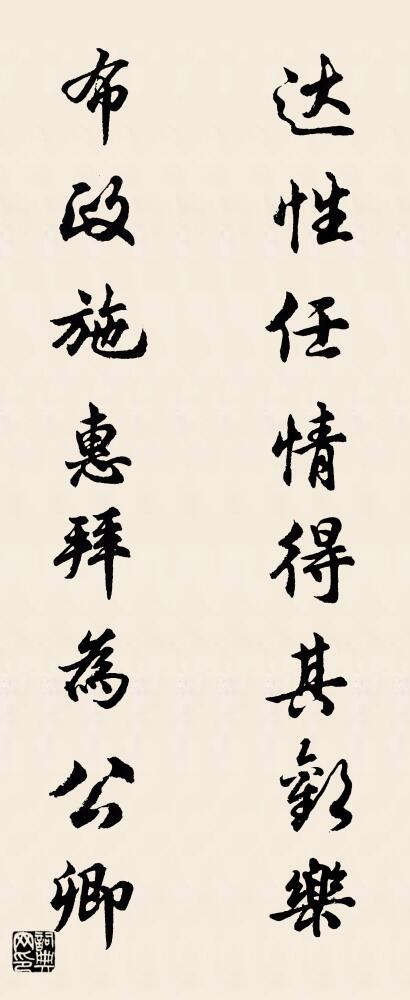 达性任情得其歡樂
布政施惠拜為公卿
詞典网印